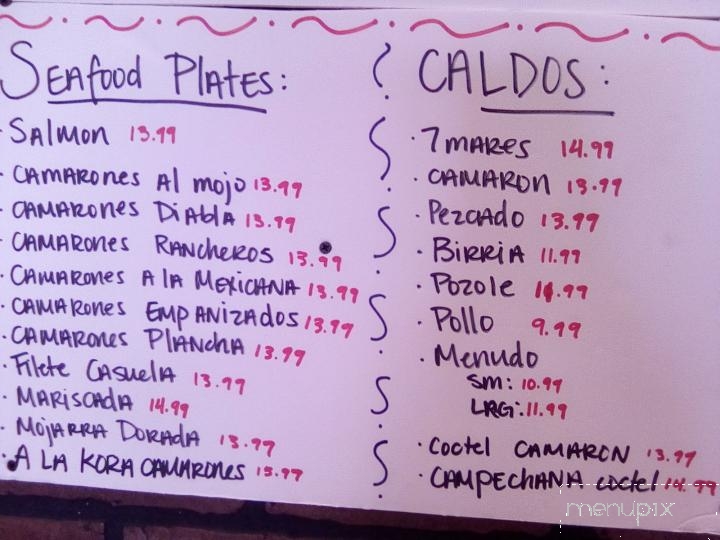 Seafood Plates:
• Salmon 13.99
• Camarones Al mojo 13.99
• Camarones Diabla 13.99
• Camarones Rancheros 13.99
• Camarones A la Mexicana 13.99
• Camarones Empanizados 13.99
• Camarones Plancha 13.99
• Filete Casuela 13.99
• Mariscada 14.99
• Mojarra Dorada 13.99
• A LA KORA CAMARONES 13.99
CALDOS:
• 7 mares 14.99
• CAMARON 13.99
• Pezcado 13.99
• Birria 11.99
• Pozole 11.99
• Pollo 9.99
• Menudo
SM: 10.99
LRG: 11.99
• Coctel CAMARON 13.99
• CAMPECHANA coctel 14.99
menupix